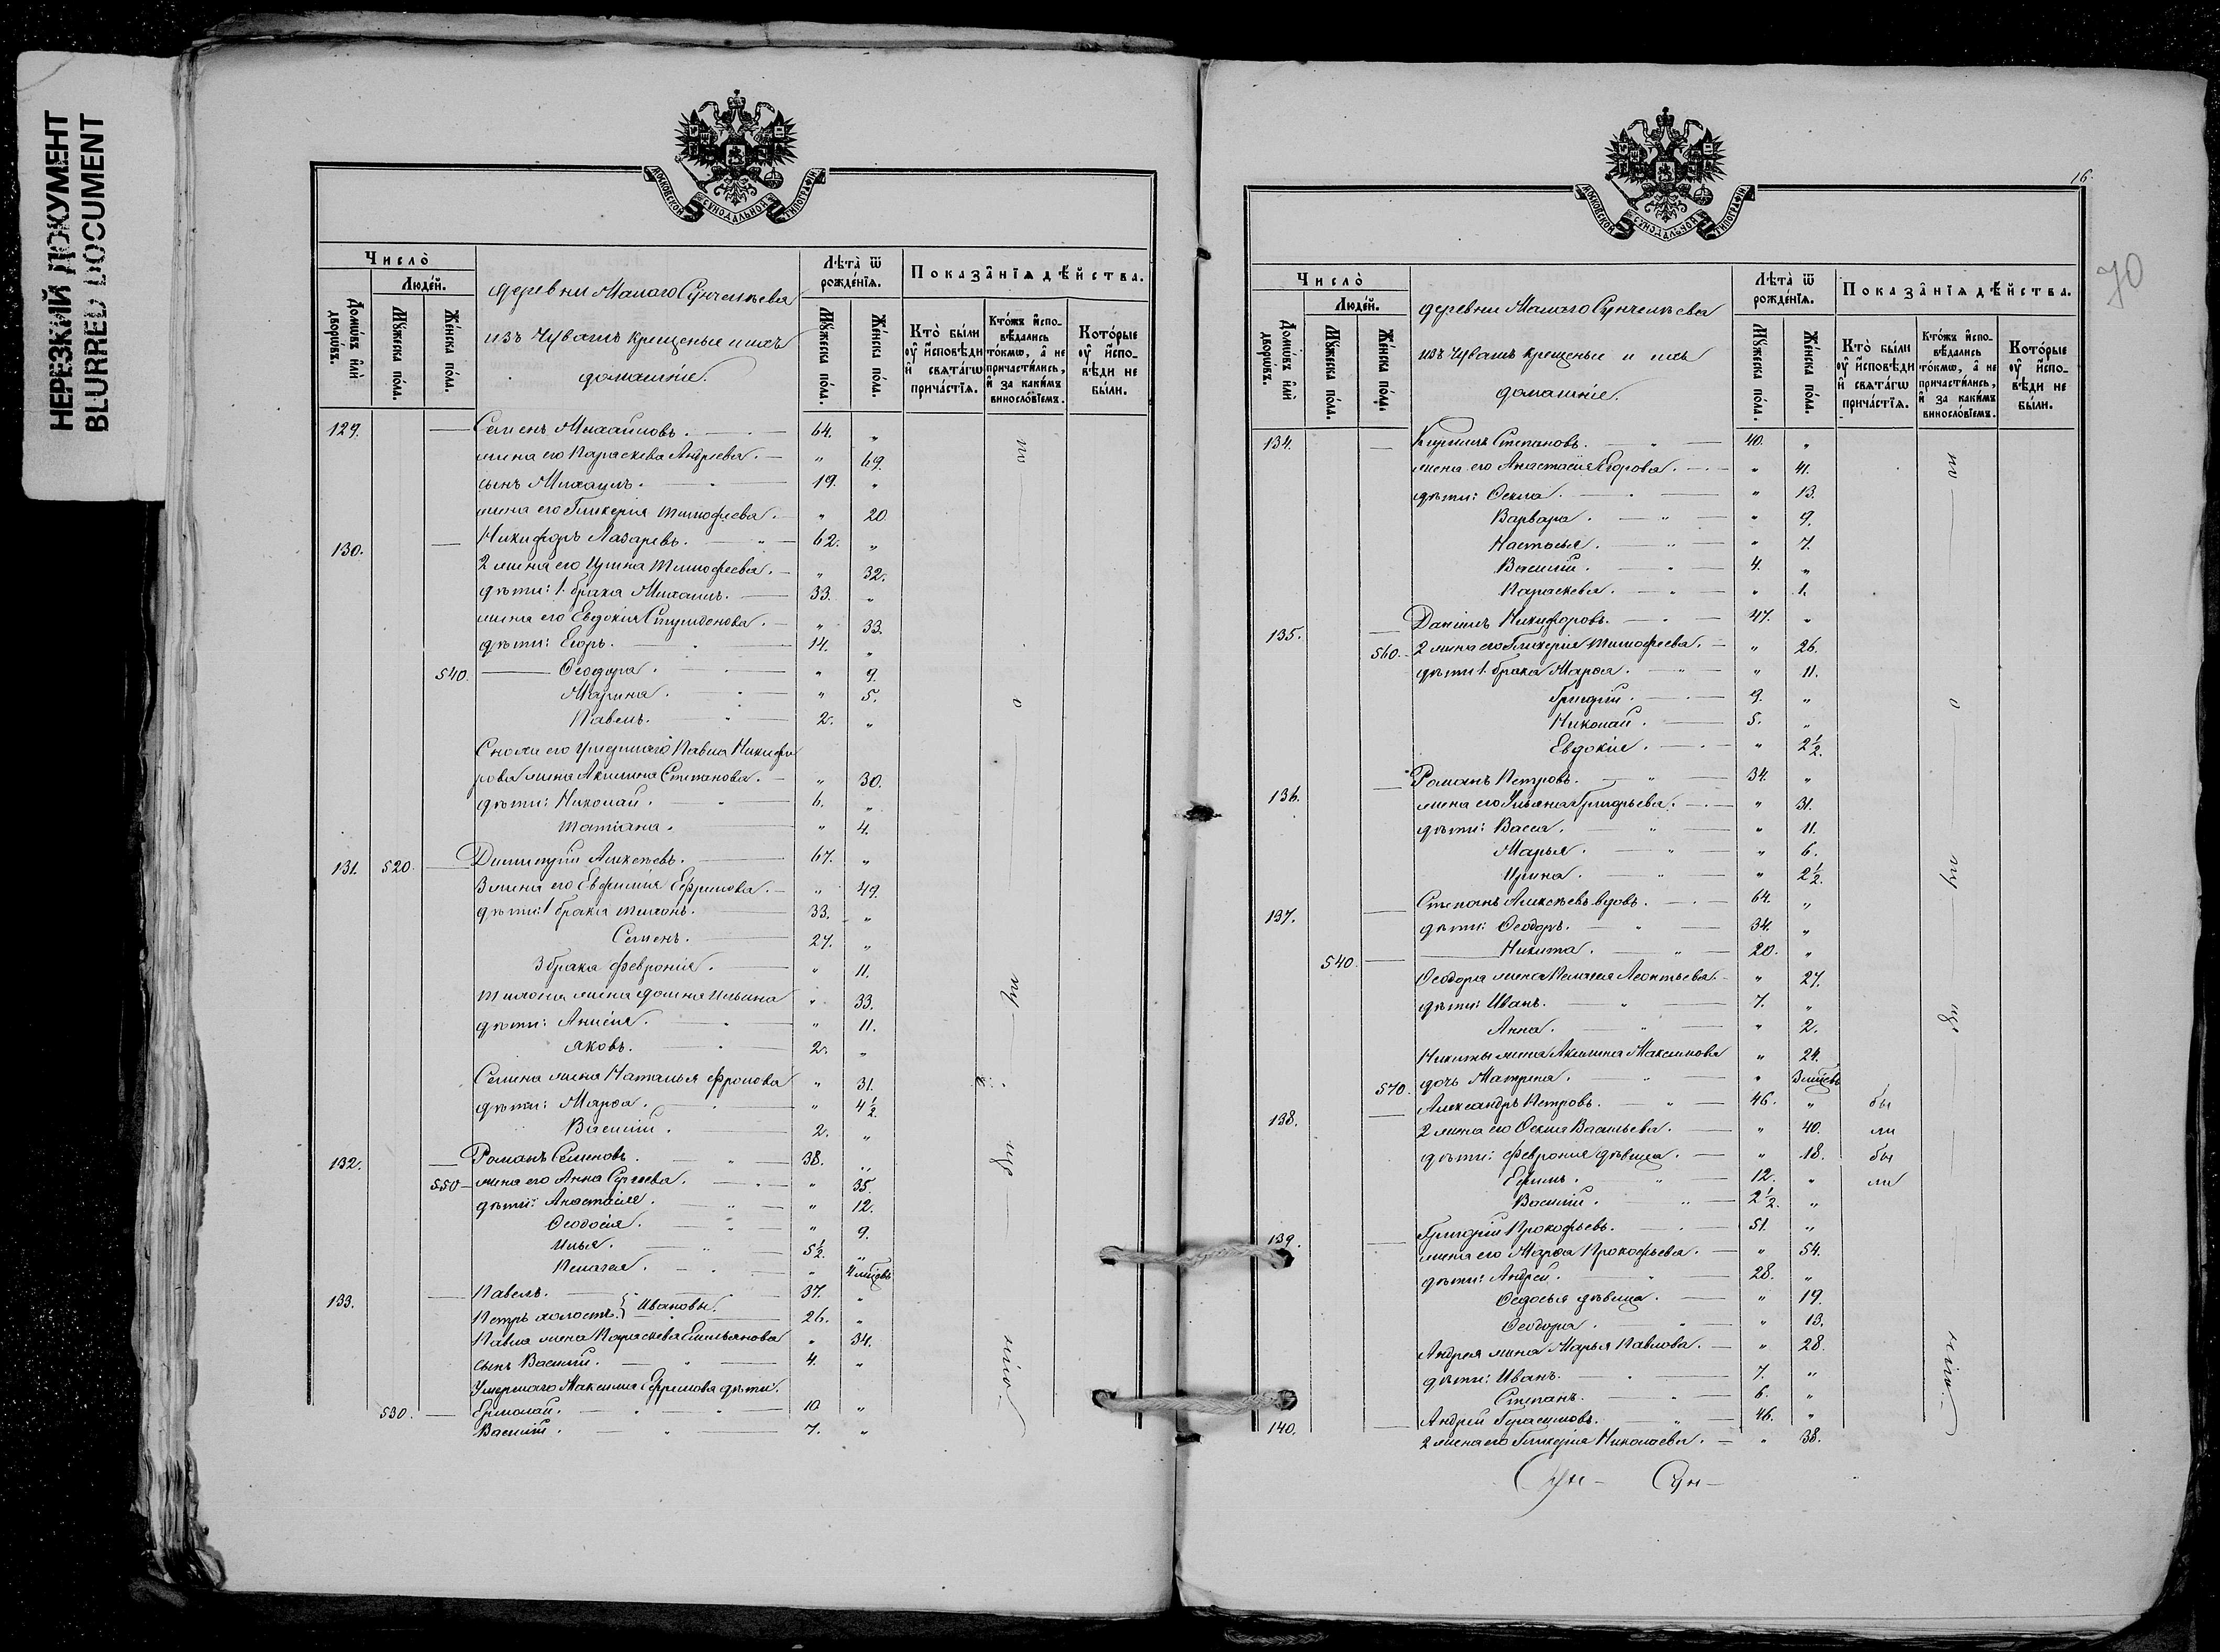 НЕРЕЗКИЙ ДОКУМЕНТ
BLURRED DOCUMENT
МОСКОВСКОЙ СѴНОДАЛЬНОЙ ТИПОГРАФІИ
Число̀
Люде́й.
Домѡ́въ и҆лѝ дворѡ́въ.
Мꙋ́жеска по́ла.
Же́нска по́ла.
деревни Малаго Сунчелѣева
изъ Чувашъ крещеные и ихъ
домашніе.
Лѣта̀ ѿ рожде́нїѧ.
Мꙋ́жеска по́ла.
Же́нска по́ла.
Показа̂нїѧ дѣ́йства.
Кто̀ бы́ли ᲂу҆ и҆сповѣ́ди и҆ свѧта́гѡ прича́стїѧ.
Кто́жъ и҆спо-вѣ́дались то́кмѡ, а҆ не причасти́лись, и҆ за каки́мъ виносло́вїемъ.
Кото́рые ᲂу҆ и҆спо-вѣ́ди не бы́ли.
129. Семенъ Михайловъ. 64. „
жена его Параскева Андреева. „ 69.
сынъ Михаилъ. 19. „
жена его Гликерія Тимофеева. „ 20
130. Никифоръ Лазаревъ. 62. „
2 жена его Ирина Тимофеева. „ 32.
дѣти: 1. брака Михаилъ. 33. „
жена его Евдокія Спиридонова. „ 33.
дѣти: Егоръ. 14. „
540. Ѳеодора. „ 9.
Марина. „ 5.
Павелъ. 2. „
Павла Никифо
рова жена Акилина Степанова. „ 30.
дѣти: Николай. 6. „
Татіана. „ 4.
131. 520. Димитрій Алексѣевъ. 67. „
3 жена его Евфимія Ефремова. „ 49.
дѣти: 1 брака Тихонъ. 33. „
Семенъ. 27. „
3 брака Февронія. „ 11.
Тихона жена Ильина „ 33.
дѣти: Анисія. „ 11.
Яковъ. 2. „
Семена жена Наталья Фролова „ 31.
дѣти: Марѳа. „ 4 1/2
Василій. 2. „
132. Романъ Семеновъ. 38. „
550 жена его Анна Сергѣева. „ 35.
дѣти: Анастасія. „ 12.
Ѳеодосія. „ 9.
Илья. 5 1/2. „
Пелагея. „ 4 мѣсѣвъ
133. Павелъ. 37. „
Петръ холостъ. } Ивановы. 26. „
Павла жена Параскева Емельянова „ 34.
сынъ Василій. 4. „
Умершаго Максима Ефремова дѣти:
530. Ермолай. 10. „
Василій. 7. „
по о пу ще нію.
16.
70
МОСКОВСКОЙ СѴНОДАЛЬНОЙ ТИПОГРАФІИ
Число̀
Люде́й.
Домѡ́въ и҆лѝ дворѡ́въ.
Мꙋ́жеска по́ла.
Же́нска по́ла.
деревни Малаго Сунчелѣева
изъ Чувашъ крещеные и ихъ
домашніе.
Лѣта̀ ѿ рожде́нїѧ.
Мꙋ́жеска по́ла.
Же́нска по́ла.
Показа̂нїѧ дѣ́йства.
Кто̀ бы́ли ᲂу҆ и҆сповѣ́ди и҆ свѧта́гѡ прича́стїѧ.
Кто́жъ и҆спо-вѣ́дались то́кмѡ, а҆ не причасти́лись, и҆ за каки́мъ виносло́вїемъ.
Кото́рые ᲂу҆ и҆спо-вѣ́ди не бы́ли.
134. Кирилъ Степановъ. 40. „
жена его Анастасія Егорова. „ 41.
дѣти: Ѳекла. „ 13.
Варвара. „ 9.
Настасья. „ 7.
Василій. 4. „
Параскева. „ 1.
135. Данилъ Никифоровъ. 47. „
560. 2 жена его Гликерія Тимофеева. „ 26.
дѣти 1. брака Марѳа. „ 11.
Григорій. 9. „
Николай. 5. „
Евдокія. „ 2 1/2.
136. Романъ Петровъ. 34. „
жена его Ульяна Григорьева. „ 31.
дѣти: Васса. „ 11.
Марья. „ 6.
Ирина. „ 2 1/2.
137. Степанъ Алексѣевъ вдовъ. 64. „
дѣти: Ѳеодоръ. 34. „
540. Никита. 20. „
Ѳеодора жена Пелагея Леонтьева. „ 27.
дѣти: Иванъ. 7. „
Анна. „ 2.
Никиты жена Акилина Максимова „ 24.
570. дочь Матрена. „ 3 мѣсѣвъ
138. Александръ Петровъ. 46. „ бы
2 жена его Ѳекла Васильева. „ 40. ли
дѣти: Февронія дѣвица. „ 18. бы
Ефимъ. 12. „ ли
Василій. 2 1/2. „
139. Григорій Прокофьевъ. 51. „
жена его Марѳа Прокофьева. „ 54.
дѣти: Андрей. 28. „
Ѳедосья дѣвица. „ 19.
Ѳеодора. „ 13.
Андрея жена Марья Павлова. „ 28.
дѣти: Иванъ. 7. „
Степанъ. 6. „
140. Андрей Герасимовъ. 46. „
2 жена его Гликерія Николаева. „ 38.
по о пу ще нію.
Сун-